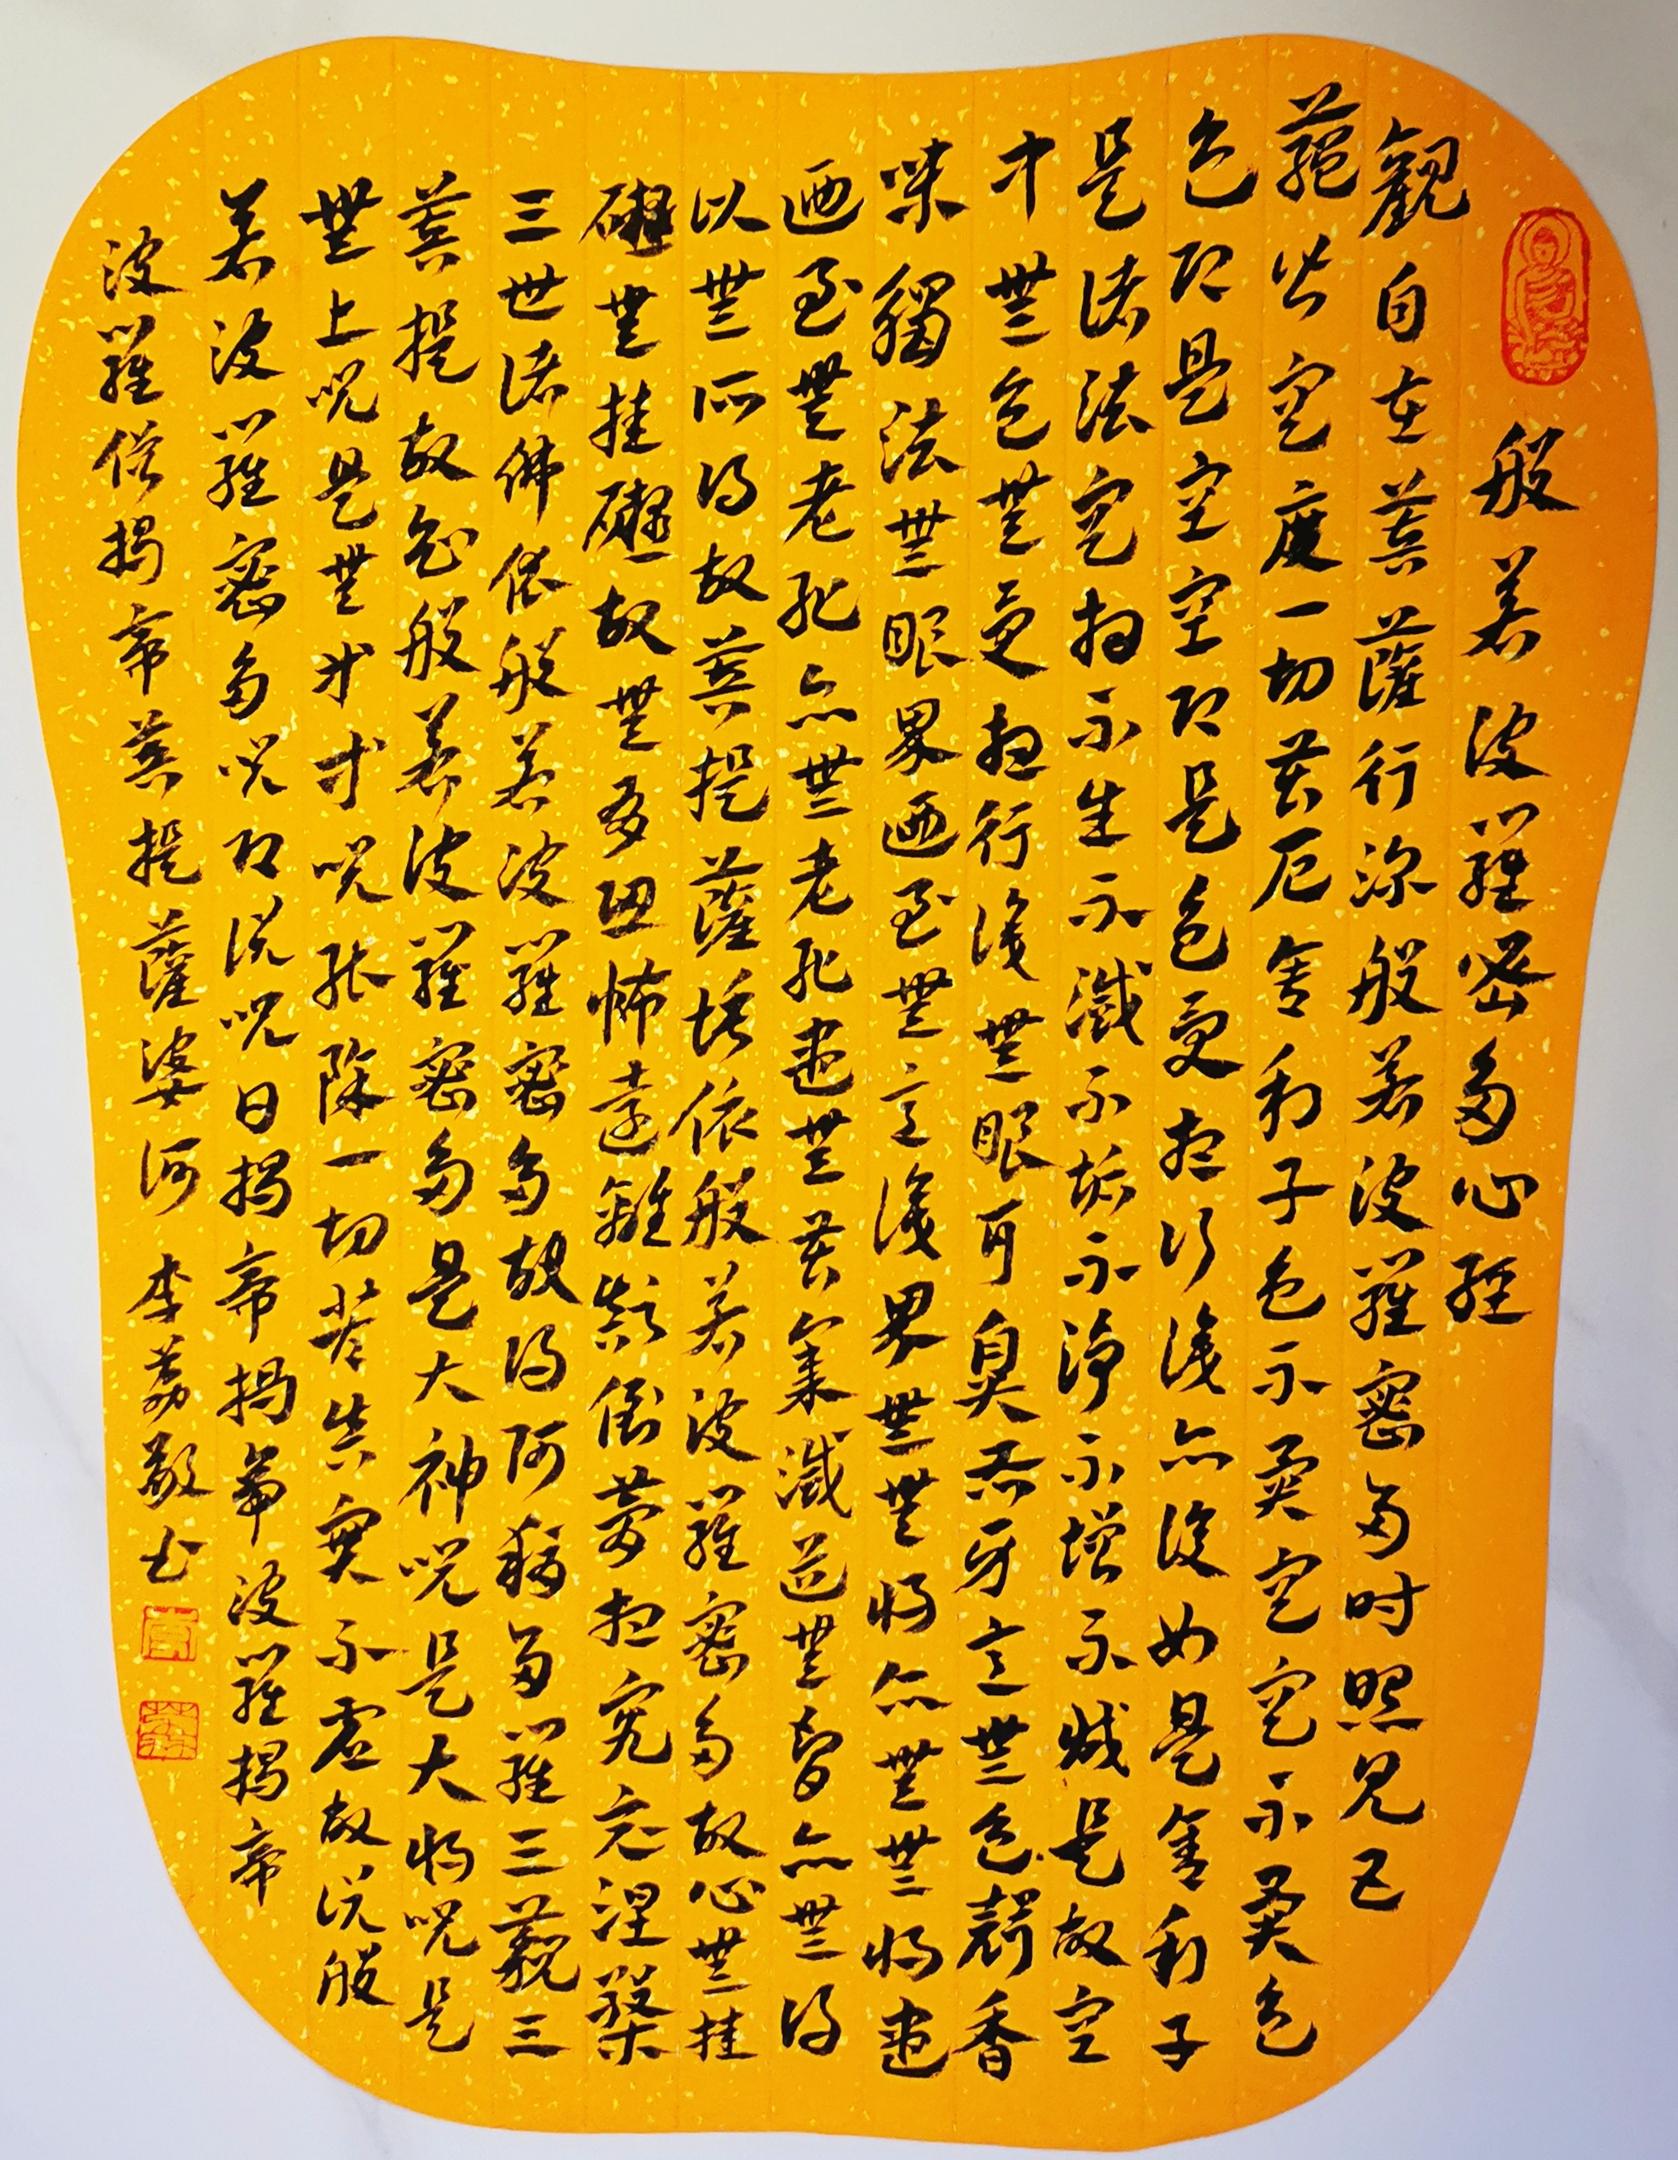 般若波羅密多心經
觀自在菩薩行深般若波羅密多時照見五
蘊皆空度一切苦厄舍利子色不異空空不異色
色即是空空即是色受想行識亦復如是舍利子
是諸法空相不生不滅不垢不淨不增不減是故空
中無色無受想行識無眼耳鼻舌身意無色聲香
味觸法無眼界乃至無意識界無無明亦無無明盡
乃至無老死亦無老死盡無苦集滅道無智亦無得
以無所得故菩提薩埵依般若波羅密多故心無挂
礙無挂礙故無有恐怖遠離顛倒夢想究竟涅槃
三世諸佛依般若波羅密多故得阿耨多羅三藐三
菩提故知般若波羅密多是大神咒是大明咒是
無上咒是無等等咒能除一切苦真實不虛故說般
若波羅密多咒即說咒曰揭帝揭帝波羅揭帝
波羅僧揭帝菩提薩婆訶 李荔敬書